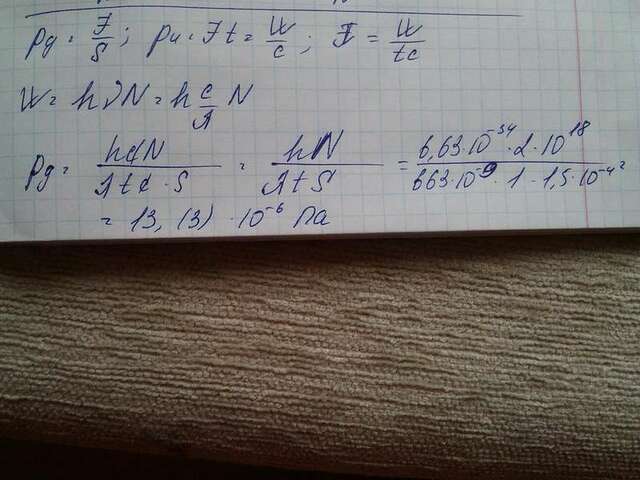 Pд = F/S; pи = Ft = W/c; F = W/tc
W = hνN = h c/λ N
Pд = hcN/λtc·S = hN/λtS = 6,63·10⁻³⁴·2·10¹⁸/663·10⁻⁹·1·1,5·10⁻⁴
= 13,(3)·10⁻⁶ Па